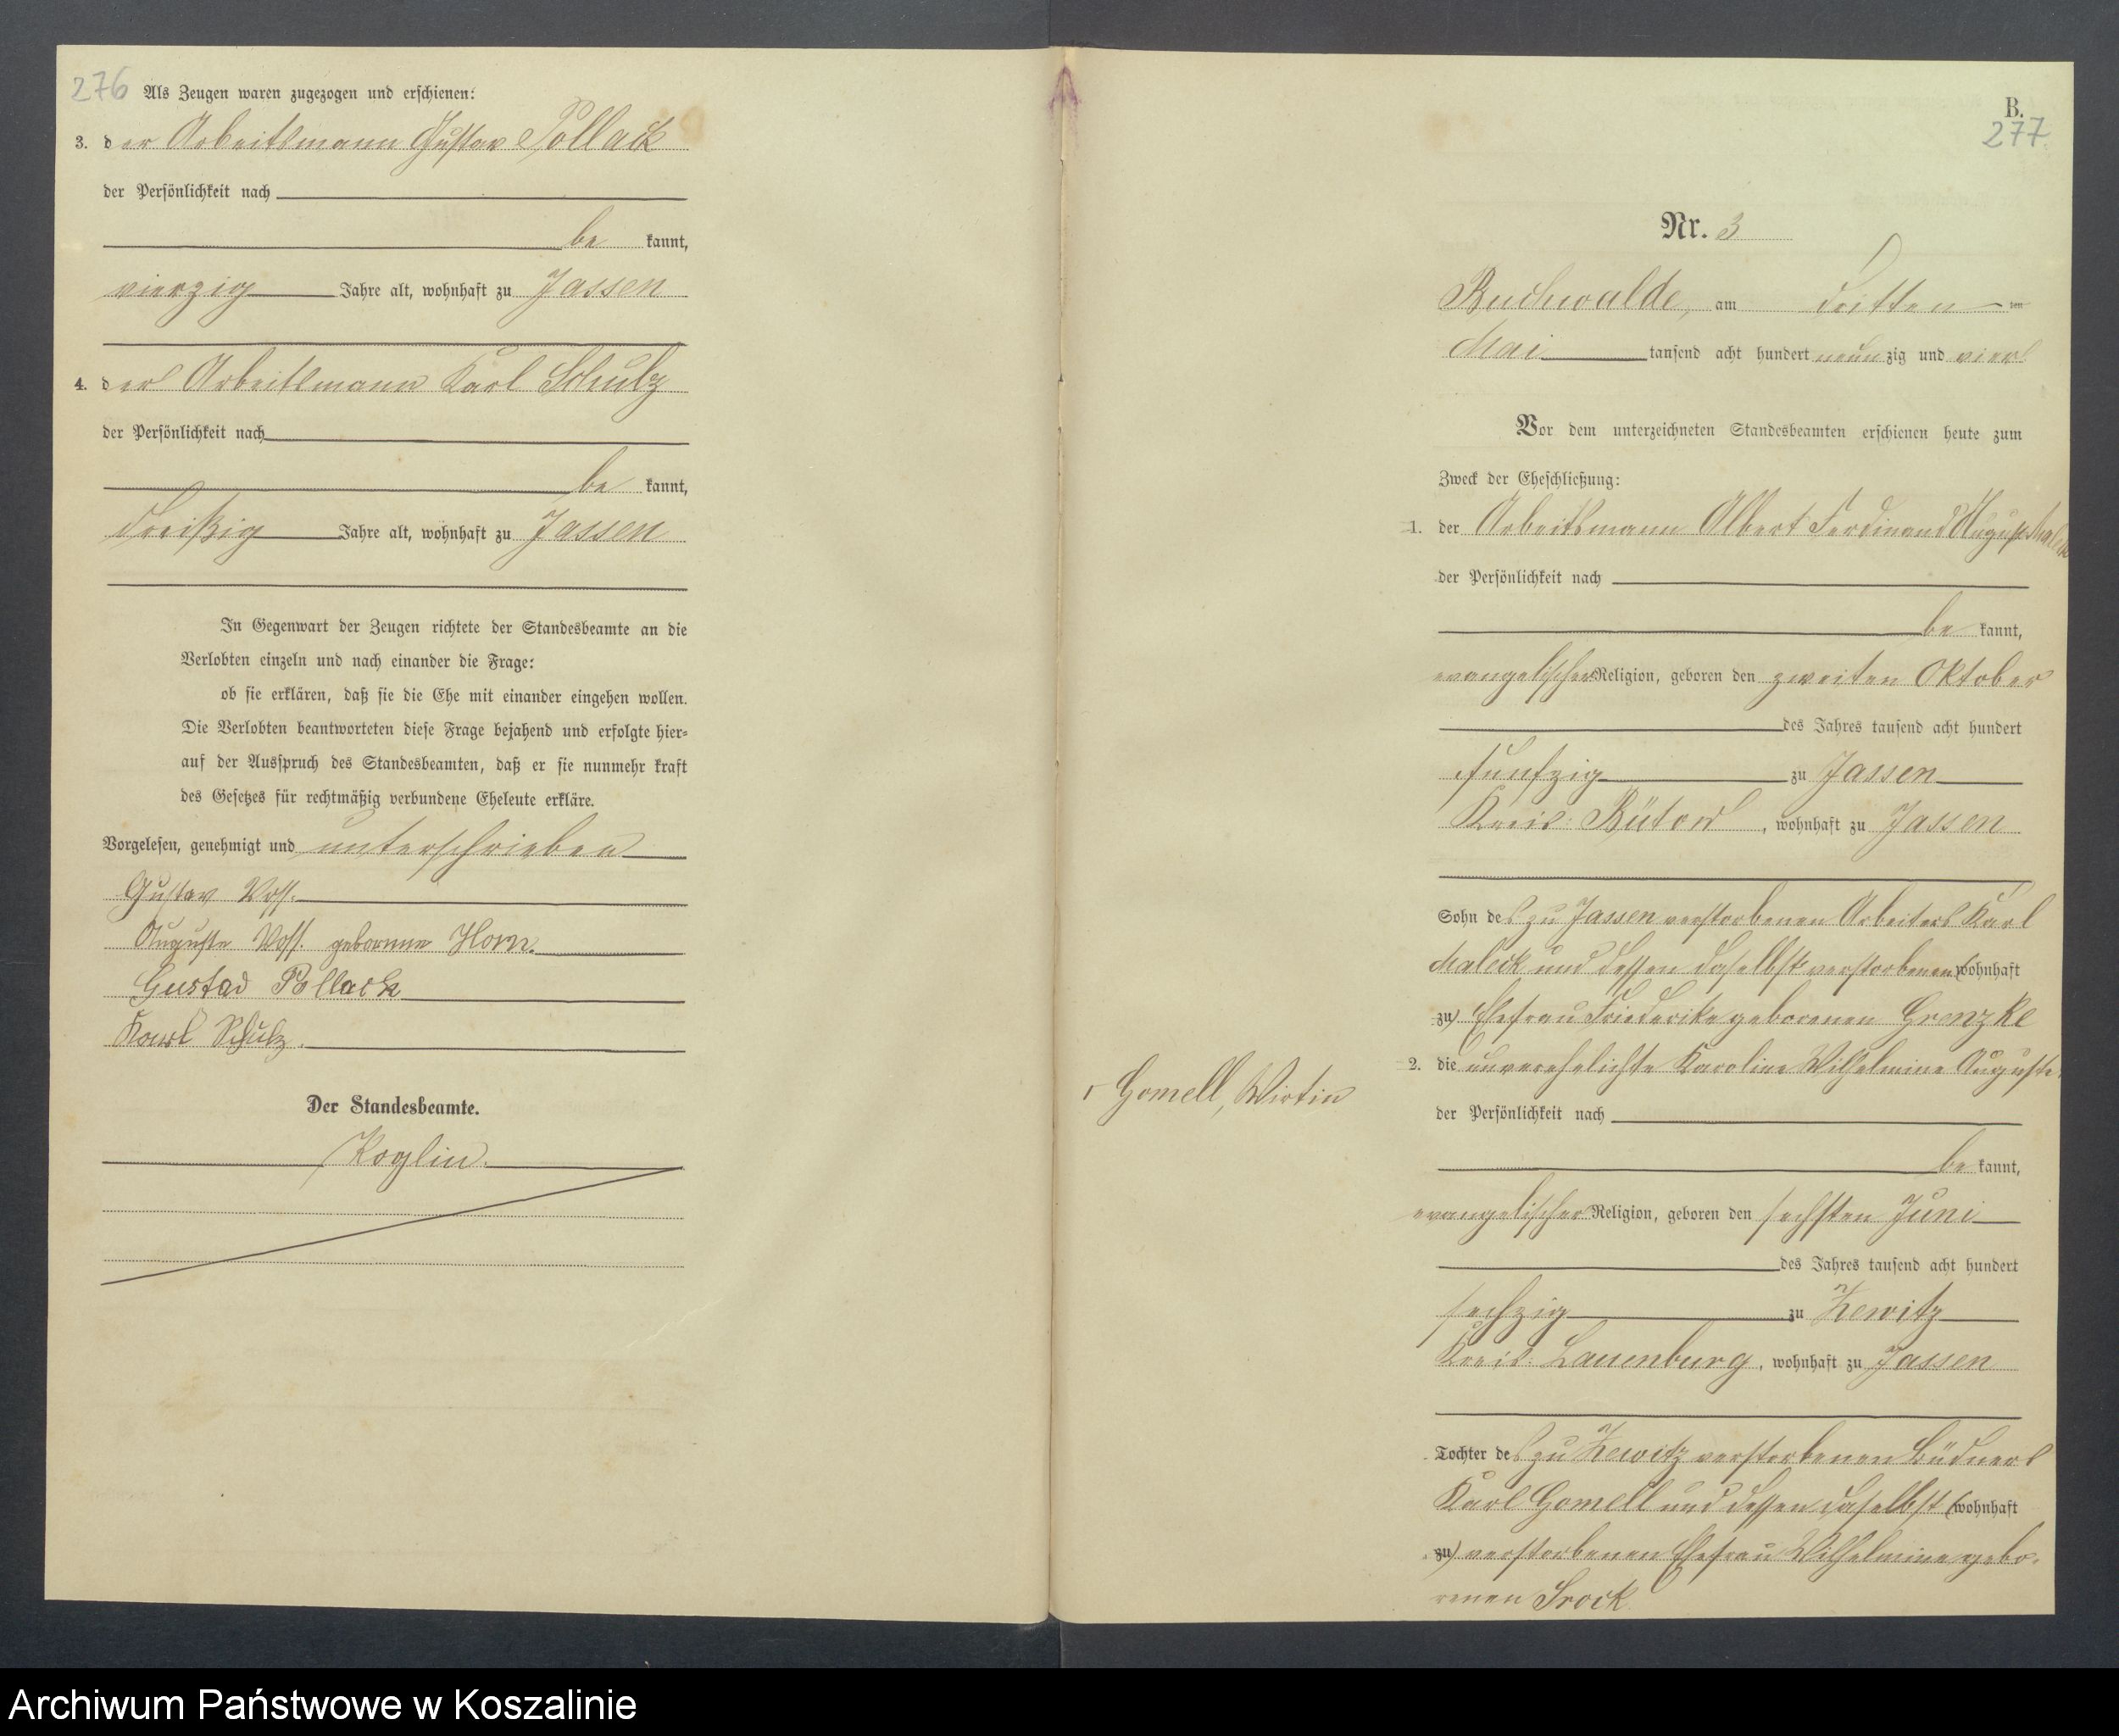 276
Als Zeugen waren zugezogen und erschienen:
3. der Arbeitsmann Gustav Pollack
der Persönlichkeit nach
be kannt,
vierzig Jahre alt, wohnhaft zu Jassen
4. der Arbeitsmann Karl Schulz
der Persönlichkeit nach
be kannt,
dreißig Jahre alt, wohnhaft zu Jassen
In Gegenwart der Zeugen richtete der Standesbeamte an die
Verlobten einzeln und nach einander die Frage:
ob sie erklären, daß sie die Ehe mit einander eingehen wollen.
Die Verlobten beantworteten diese Frage bejahend und erfolgte hier-
auf der Ausspruch des Standesbeamten, daß er sie nunmehr kraft
des Gesetzes für rechtmäßig verbundene Eheleute erkläre.
Vorgelesen, genehmigt und unterschrieben
Gustav Voss.
Auguste Voss. geborene Horn.
Gustav Pollack
Karl Schulz.
Der Standesbeamte.
Koglin.
B.
277.
Nr. 3
Buchwalde, am dritten ten
Mai tausend acht hundert neun zig und vier
Vor dem unterzeichneten Standesbeamten erschienen heute zum
Zweck der Eheschließung:
1. der Arbeitsmann Albert Ferdinand August Maleck
der Persönlichkeit nach
be kannt,
evangelischer Religion, geboren den zweiten Oktober
des Jahres tausend acht hundert
fünfzig zu Jassen
Kreis: Bütow, wohnhaft zu Jassen
Sohn des zu Jassen verstorbenen Arbeiters Karl
Maleck und dessen daselbst verstorbenen (wohnhaft
zu) Ehefrau Friederike geborenen Grenzke
2. die unverehelichte Karoline Wilhelmine Auguste
Gomell, Wirtin
der Persönlichkeit nach
be kannt,
evangelischer Religion, geboren den sechsten Juni
des Jahres tausend acht hundert
sechzig zu Zewitz
Kreis: Lauenburg, wohnhaft zu Jassen
Tochter des zu Zewitz verstorbenen Büdners
Karl Gomell und dessen daselbst (wohnhaft
zu) verstorbenen Ehefrau Wilhelmine gebo-
renen Srock
Archiwum Państwowe w Koszalinie